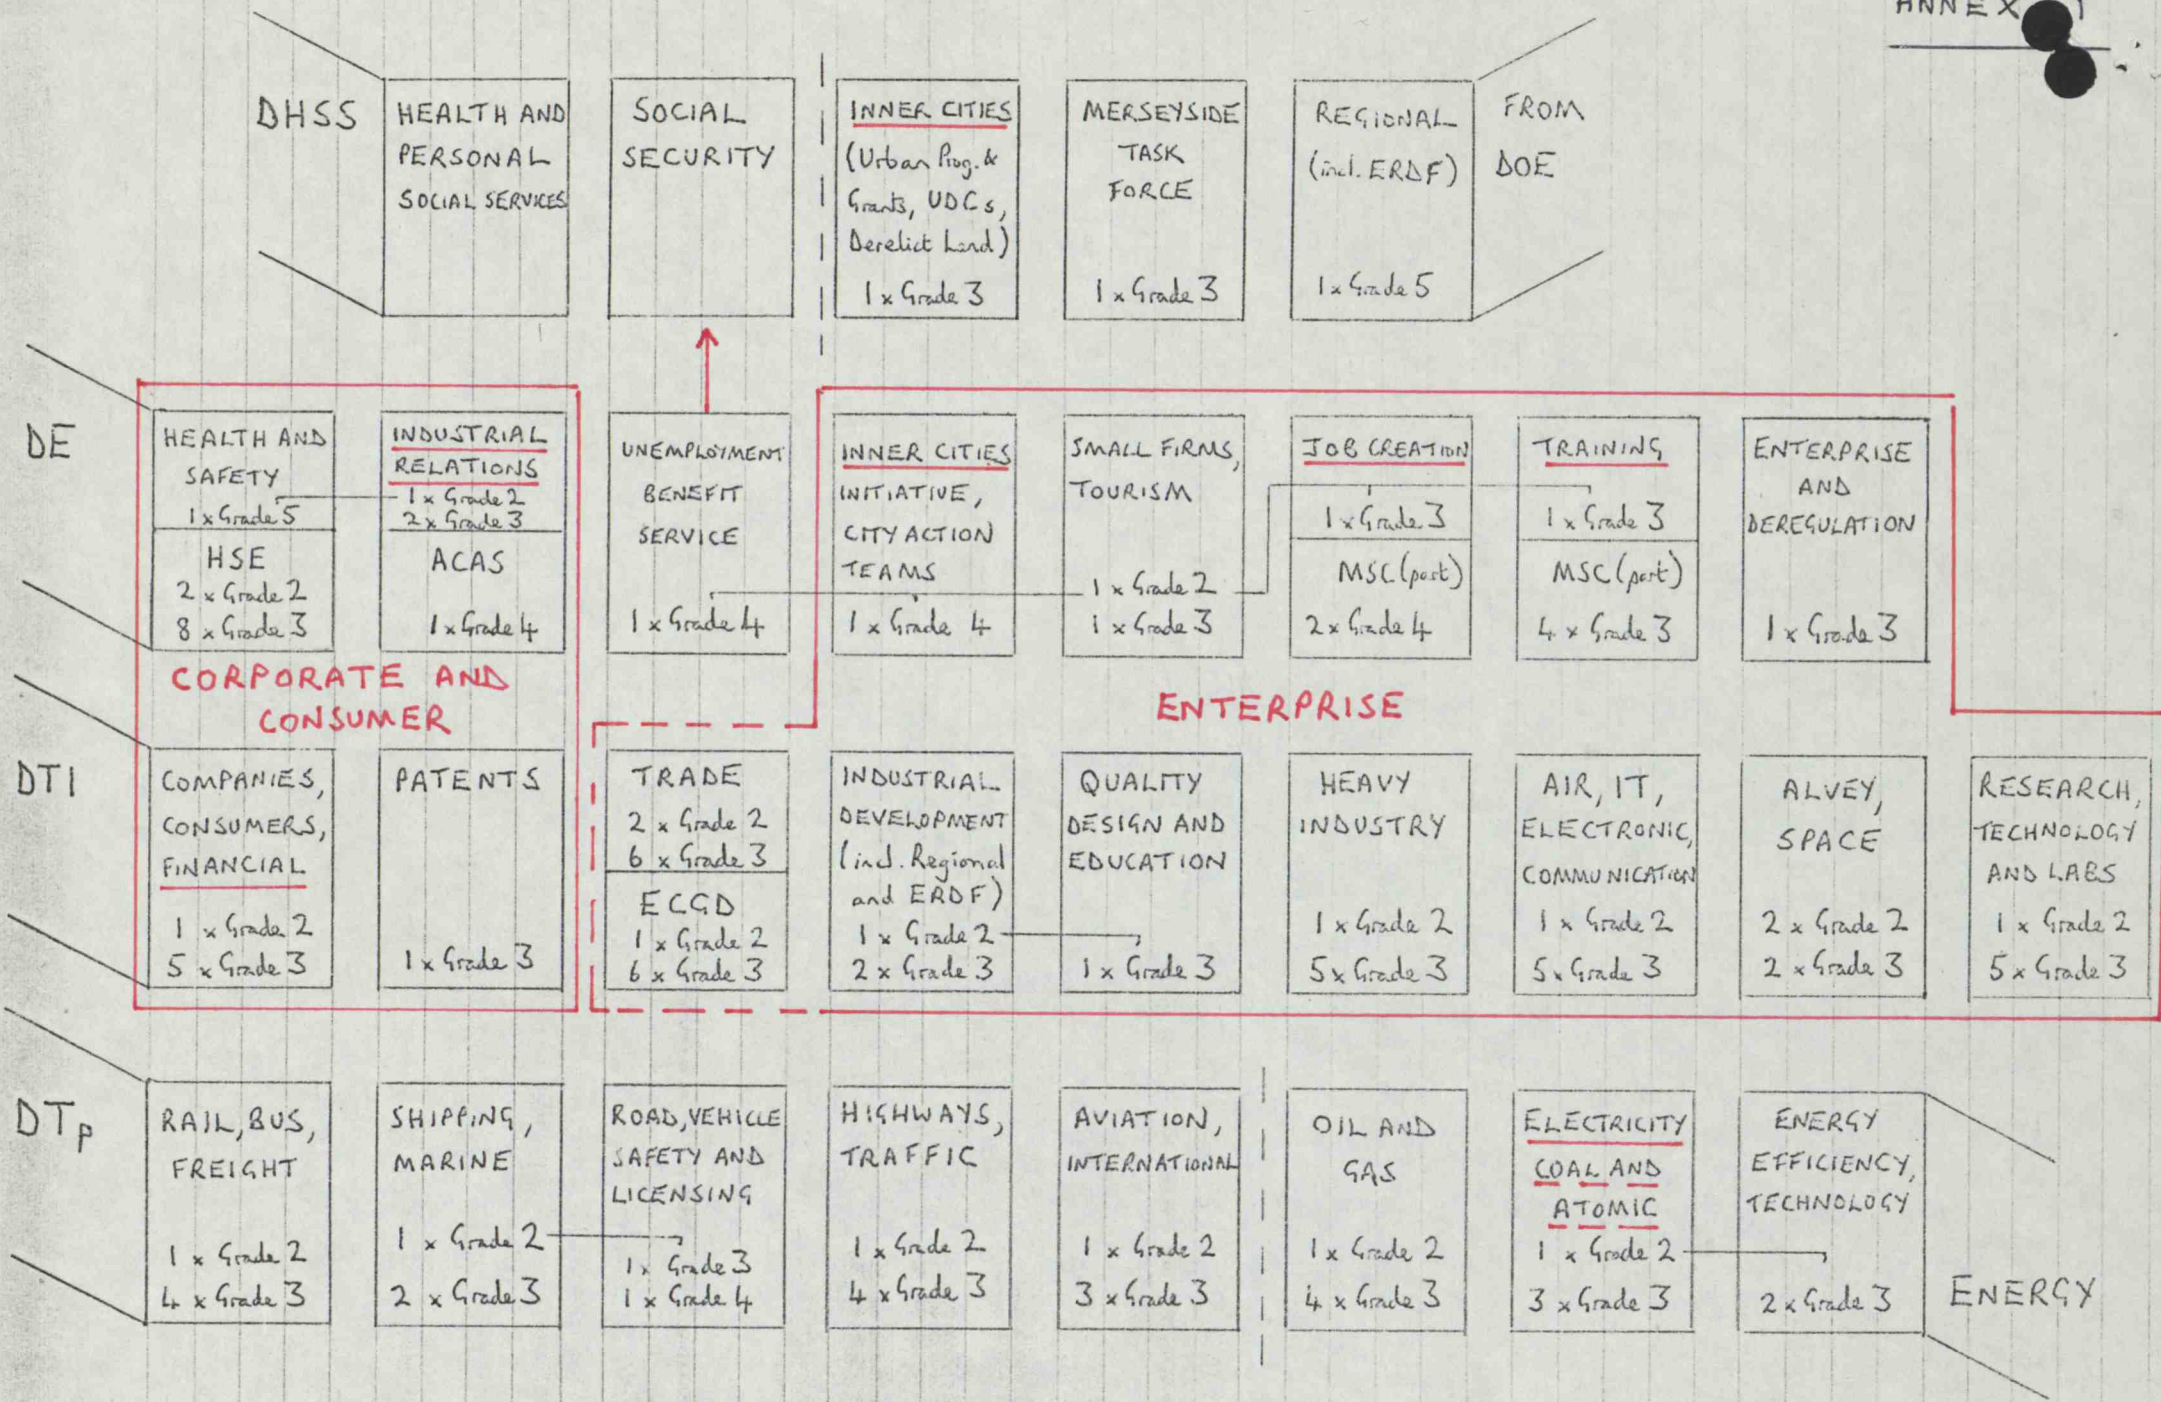 ANNEX
DHSS
HEALTH AND
PERSONAL
SOCIAL SERVICES
SOCIAL
SECURITY
INNER CITIES
(Urban Prog. &
Grants, UDCs,
Derelict Land)
1 x Grade 3
MERSEYSIDE
TASK
FORCE
1 x Grade 3
REGIONAL
(incl. ERDF)
1 x Grade 5
FROM
DOE
DE
HEALTH AND
SAFETY
1 x Grade 5
HSE
2 x Grade 2
8 x Grade 3
INDUSTRIAL
RELATIONS
1 x Grade 2
2 x Grade 3
ACAS
1 x Grade 4
UNEMPLOYMENT
BENEFIT
SERVICE
1 x Grade 4
INNER CITIES
INITIATIVE,
CITY ACTION
TEAMS
1 x Grade 4
SMALL FIRMS,
TOURISM
1 x Grade 2
1 x Grade 3
JOB CREATION
1 x Grade 3
MSC (part)
2 x Grade 4
TRAINING
1 x Grade 3
MSC (part)
4 x Grade 3
ENTERPRISE
AND
DEREGULATION
1 x Grade 3
CORPORATE AND
CONSUMER
ENTERPRISE
DTI
COMPANIES,
CONSUMERS,
FINANCIAL
1 x Grade 2
5 x Grade 3
PATENTS
1 x Grade 3
TRADE
2 x Grade 2
6 x Grade 3
ECGD
1 x Grade 2
6 x Grade 3
INDUSTRIAL
DEVELOPMENT
(incl. Regional
and ERDF)
1 x Grade 2
2 x Grade 3
QUALITY
DESIGN AND
EDUCATION
1 x Grade 3
HEAVY
INDUSTRY
1 x Grade 2
5 x Grade 3
AIR, IT,
ELECTRONIC,
COMMUNICATION
1 x Grade 2
5 x Grade 3
ALVEY,
SPACE
2 x Grade 2
2 x Grade 3
RESEARCH,
TECHNOLOGY
AND LABS
1 x Grade 2
5 x Grade 3
DTp
RAIL, BUS,
FREIGHT
1 x Grade 2
4 x Grade 3
SHIPPING,
MARINE
1 x Grade 2
2 x Grade 3
ROAD, VEHICLE
SAFETY AND
LICENSING
1 x Grade 3
1 x Grade 4
HIGHWAYS,
TRAFFIC
1 x Grade 2
4 x Grade 3
AVIATION,
INTERNATIONAL
1 x Grade 2
3 x Grade 3
OIL AND
GAS
1 x Grade 2
4 x Grade 3
ELECTRICITY
COAL AND
ATOMIC
1 x Grade 2
3 x Grade 3
ENERGY
EFFICIENCY,
TECHNOLOGY
2 x Grade 3
ENERGY